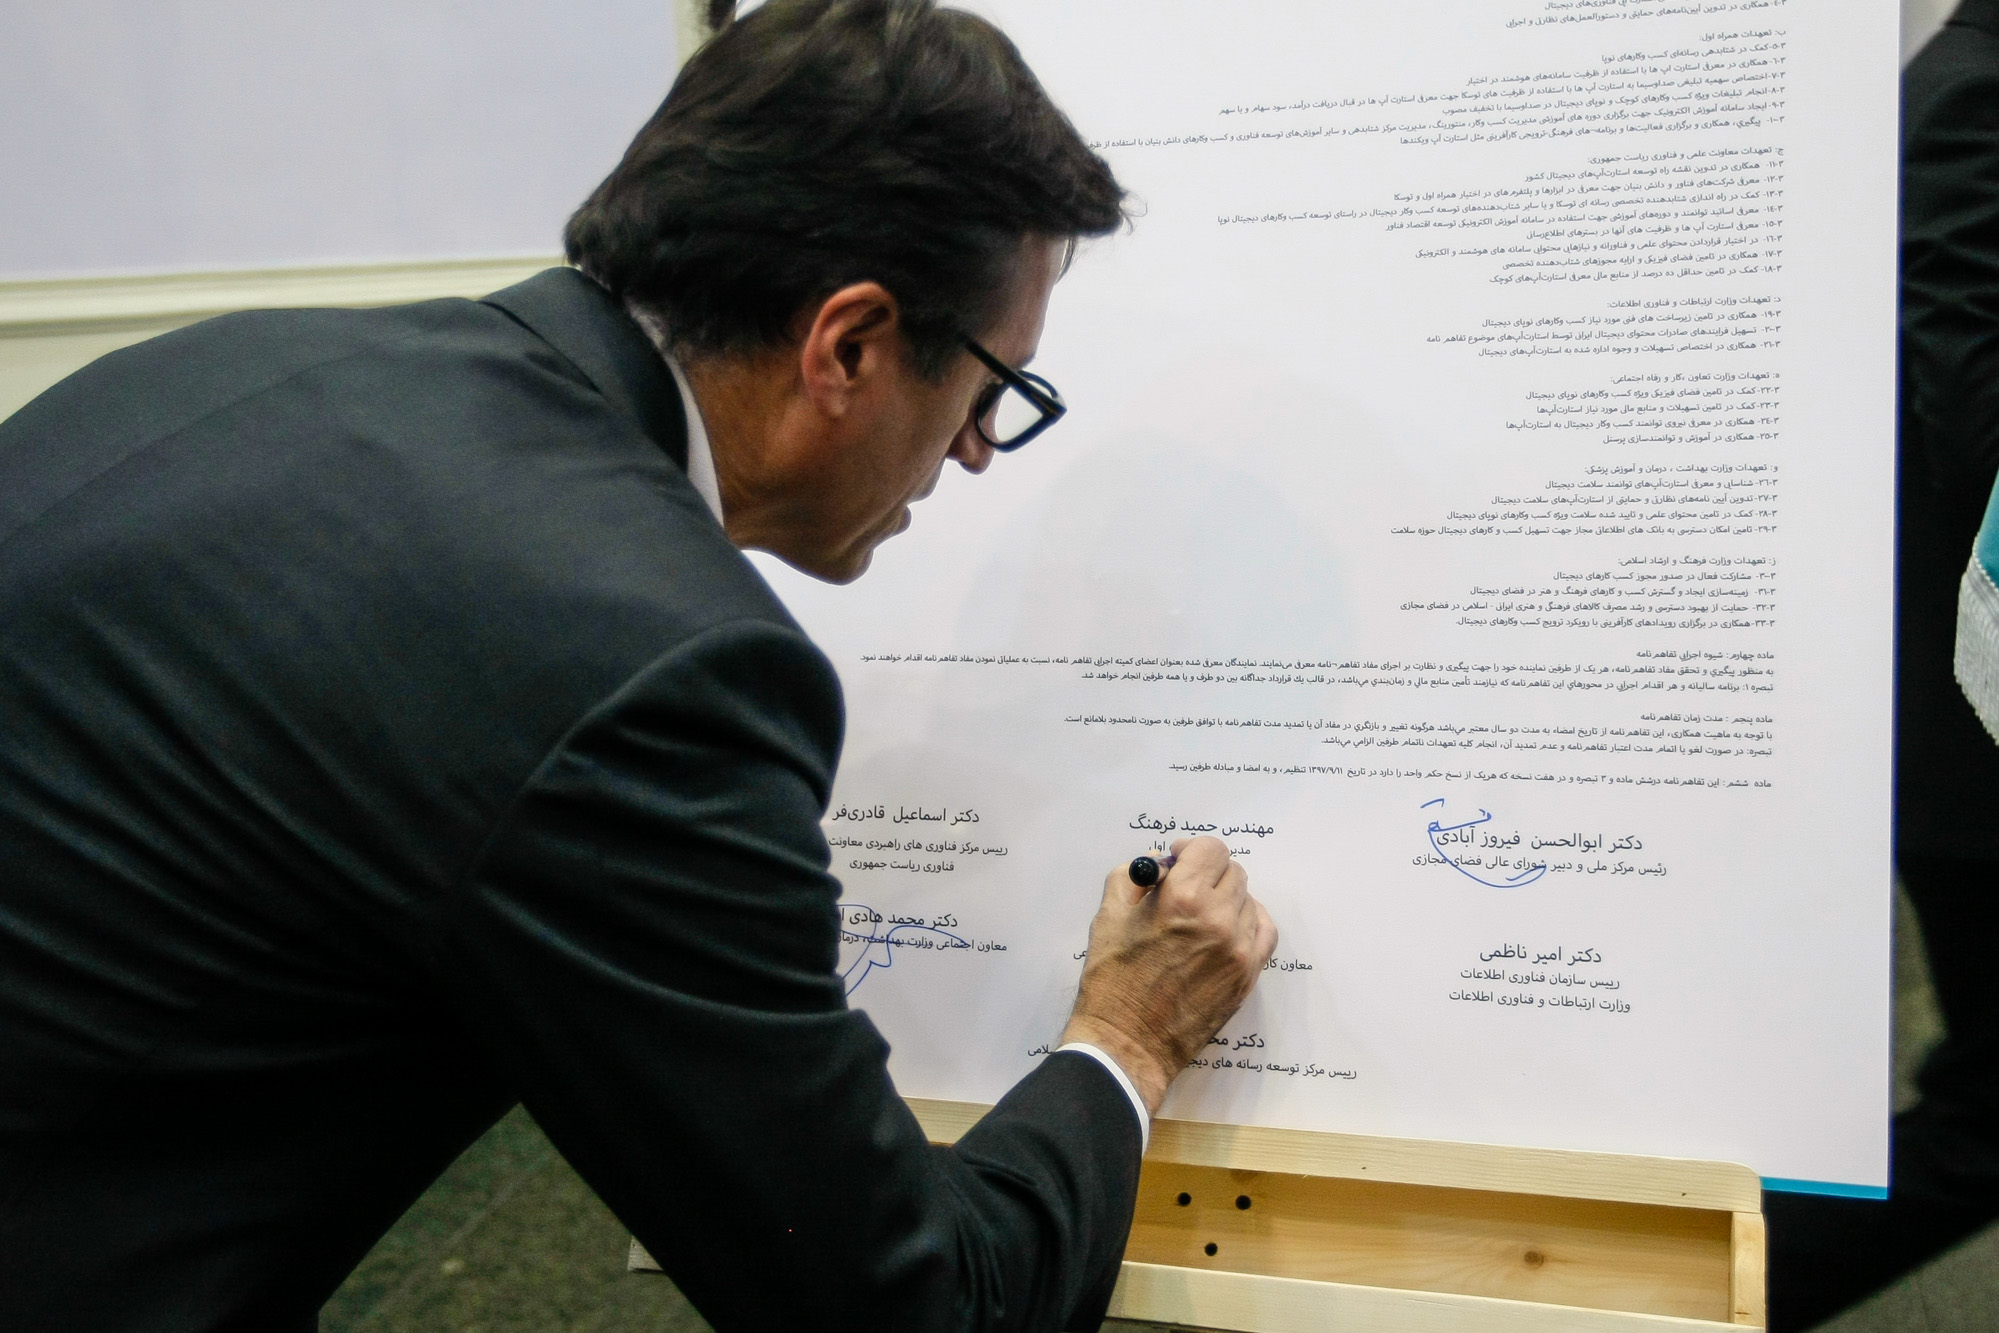 ۳-٤- همکاری در تدوین آیین‌نامه‌های حمایتی و دستورالعمل‌های نظارتی و اجرایی
ب: تعهدات همراه اول:
۳-٥-کمک در شتابدهی رسانه‌ای کسب وکارهای نوپا
۳-٦-همکاری در معرفی استارت اپ ها با استفاده از ظرفیت سامانه‌های هوشمند در اختیار
۳-۷-اختصاص سهمیه تبلیغی صداوسیما به استارت آپ ها با استفاده از ظرفیت های توسکا جهت معرفی استارت آپ ها در قبال دریافت درآمد، سود سهام و یا سهم
۳-۸-انجام تبلیغات ویژه کسب وکارهای کوچک و نوپای دیجیتال در صداوسیما با تخفیف مصوب
۳-۹-ایجاد سامانه آموزش الکترونیک جهت برگزاری دوره های آموزشی مدیریت کسب وکار، منتورینگ، مدیریت مرکز شتابدهی و سایر آموزش‌های توسعه فناوری و کسب وکارهای دانش بنیان با استفاده از
۳-۱۰- پیگیری، همکاری و برگزاری فعالیت‌ها و برنامه¬های فرهنگی-ترویجی کارآفرینی مثل استارت آپ ویکندها
ج: تعهدات معاونت علمی و فناوری ریاست جمهوری:
۳-۱۱- همکاری در تدوین نقشه راه توسعه استارت‌آپ‌های دیجیتال کشور
۳-۱۲- معرفی شرکت‌های فناور و دانش بنیان جهت معرفی در ابزارها و پلتفرم‌های در اختیار همراه اول و توسکا
۳-۱۳- کمک در راه اندازی شتابدهنده تخصصی رسانه ای توسکا و یا سایر شتاب‌دهنده‌های توسعه کسب وکار دیجیتال در راستای توسعه کسب وکارهای دیجیتال نوپا
۳-۱٤- معرفی اساتید توانمند و دوره‌های آموزشی جهت استفاده در سامانه آموزش الکترونیکی توسعه اقتصاد فناور
۳-۱٥- معرفی استارت آپ ها و ظرفیت های آنها در بسترهای اطلاع‌رسانی
۳-۱٦- در اختیار قراردادن محتوای علمی و فناورانه و نیازهایی محتوایی سامانه های هوشمند و الکترونیکی
۳-۱۷- همکاری در تامین فضای فیزیکی و ارایه مجوزهای شتاب‌دهنده تخصصی
۳-۱۸- کمک در تامین حداقل ده درصد از منابع مالی معرفی استارت‌آپ‌های کوچک
د: تعهدات وزارت ارتباطات و فناوری اطلاعات:
۳-۱۹- همکاری در تامین زیرساخت های فنی مورد نیاز کسب وکارهای نوپای دیجیتال
۳-۲۰- تسهیل فرایندهای صادرات محتوای دیجیتال ایرانی توسط استارت‌آپ‌های موضوع تفاهم نامه
۳-۲۱- همکاری در اختصاص تسهیلات و وجوه اداره شده به استارت‌آپ‌های دیجیتال
ه: تعهدات وزارت تعاون ،کار و رفاه اجتماعی:
۳-۲۲-کمک در تامین فضای فیزیکی ویژه کسب وکارهای نوپای دیجیتال
۳-۲۳-کمک در تامین تسهیلات و منابع مالی مورد نیاز استارت‌آپ‌ها
۳-۲٤- همکاری در معرفی نیروی توانمند کسب وکار دیجیتال به استارت‌آپ‌ها
۳-۲٥- همکاری در آموزش و توانمندسازی پرسنل
و: تعهدات وزارت بهداشت ، درمان و آموزش پزشکی:
۳-۲٦- شناسایی و معرفی استارت‌آپ‌های توانمند سلامت دیجیتال
۳-۲۷-تدوین آیین نامه‌های نظارتی و حمایتی از استارت‌آپ‌های سلامت دیجیتال
۳-۲۸-کمک در تامین محتوای علمی و تایید شده سلامت ویژه کسب وکارهای نوپای دیجیتال
۳-۲۹-تامین امکان دسترسی به بانک های اطلاعاتی مجاز جهت تسهیل کسب و کارهای دیجیتال حوزه سلامت
ز: تعهدات وزارت فرهنگ و ارشاد اسلامی:
۳-۳۰- مشارکت فعال در صدور مجوز کسب کارهای دیجیتال
۳-۳۱- زمینه‌سازی ایجاد و گسترش کسب و کارهای فرهنگ و هنر در فضای دیجیتال
۳-۳۲- حمایت از بهبود دسترسی و رشد مصرف کالاهای فرهنگی و هنری ایرانی - اسلامی در فضای مجازی
۳-۳۳-همکاری در برگزاری رویدادهای کارآفرینی با رویکرد ترویج کسب وکارهای دیجیتال.
ماده چهارم: شیوه اجرایی تفاهم‌نامه
به منظور پیگیری و تحقق مفاد تفاهم‌نامه، هر یک از طرفین نماینده خود را جهت پیگیری و نظارت بر اجرای مفاد تفاهم¬نامه معرفی می‌نمایند. نمایندگان معرفی شده بعنوان اعضای کمیته اجرایی تفاهم نامه، نسبت به عملیاتی نمودن مفاد تفاهم‌نامه اقدام خواهند نمود.
تبصره ۱: برنامه سالیانه و هر اقدام اجرایی در محورهای این تفاهم‌نامه که نیازمند تأمین منابع مالی و زمان‌بندی می‌باشد، در قالب یک قرارداد جداگانه بین دو طرف و یا همه طرفین انجام خواهد شد.
ماده پنجم : مدت زمان تفاهم‌نامه
با توجه به ماهیت همکاری، این تفاهم‌نامه از تاریخ امضاء به مدت دو سال معتبر می‌باشد هرگونه تغییر و بازنگری در مفاد آن یا تمدید مدت تفاهم‌نامه با توافق طرفین به صورت نامحدود بلامانع است.
تبصره: در صورت لغو یا اتمام مدت اعتبار تفاهم‌نامه و عدم تمدید آن، انجام کلیه تعهدات ناتمام طرفین الزامی می‌باشد.
ماده ششم: این تفاهم‌نامه درشش ماده و ۳ تبصره و در هفت نسخه که هریک از نسخ حکم واحد را دارد در تاریخ ۱۳۹۷/۹/۱۱ تنظیم، و به امضا و مبادله طرفین رسید.
دکتر ابوالحسن فیروز آبادی
رئیس مرکز ملی و دبیر شورای عالی فضای مجازی
مهندس حمید فرهنگ
اول
دکتر اسماعیل قادری‌فر
رییس مرکز فناوری های راهبردی معاونت
فناوری ریاست جمهوری
دکتر امیر ناظمی
رییس سازمان فناوری اطلاعات
وزارت ارتباطات و فناوری اطلاعات
معاون
دکتر محمد هادی
معاون اجتماعی وزارت بهداشت،
دکتر
رییس مرکز توسعه رسانه های